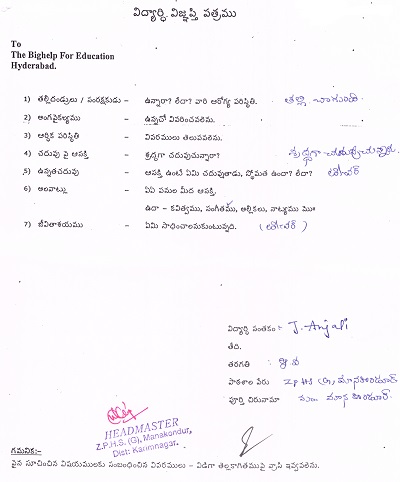 విద్యార్ధి విజ్ఞప్తి పత్రము
To
The Bighelp For Education
Hyderabad.
1) తల్లీదండ్రులు / సంరక్షకుడు - ఉన్నారా? లేదా? వారి ఆరోగ్య పరిస్థితి. తల్లి
2) అంగవైకల్యము - ఉన్నచో వివరించవలెను.
3) ఆర్ధిక పరిస్థితి - వివరములు తెలుపవలెను.
4) చదువు పై ఆసక్తి - శ్రద్ధగా చదువుచున్నారా? శ్రద్ధగా చదువుచున్నాడు
5) ఉన్నతచదువు - ఆసక్తి ఉంటే ఏమి చదువుతాడు, స్ధోమత ఉందా? లేదా?
6) అలవాట్లు - ఏఏ పనుల మీద ఆసక్తి.
ఉదా - కవిత్వము, సంగీతము, అల్లికలు, నాట్యము మొ॥
7) జీవితాశయము - ఏమి సాధించాలనుకుంటున్నది.
విద్యార్ధి సంతకం: J. Anjali
తేది.
తరగతి :
పాఠశాల పేరు : ZPHS (G), మానకొండూర్
పూర్తి చిరునామా : మానకొండూర్
HEADMASTER
Z.P.H.S. (G), Manakondur,
Dist: Karimnagar.
గమనిక:-
పైన సూచించిన విషయములకు సంబంధించిన వివరములు - విడిగా తెల్లకాగితముపై వ్రాసి ఇవ్వవలెను.